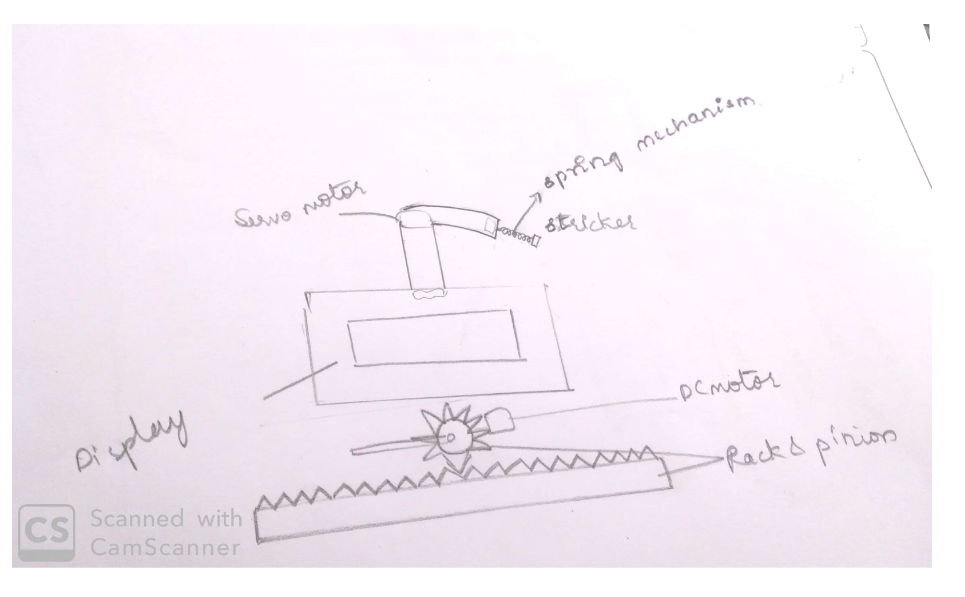 spring mechanism
Servo motor
stricker
DC motor
Display
Rack & pinion
CS Scanned with
CamScanner